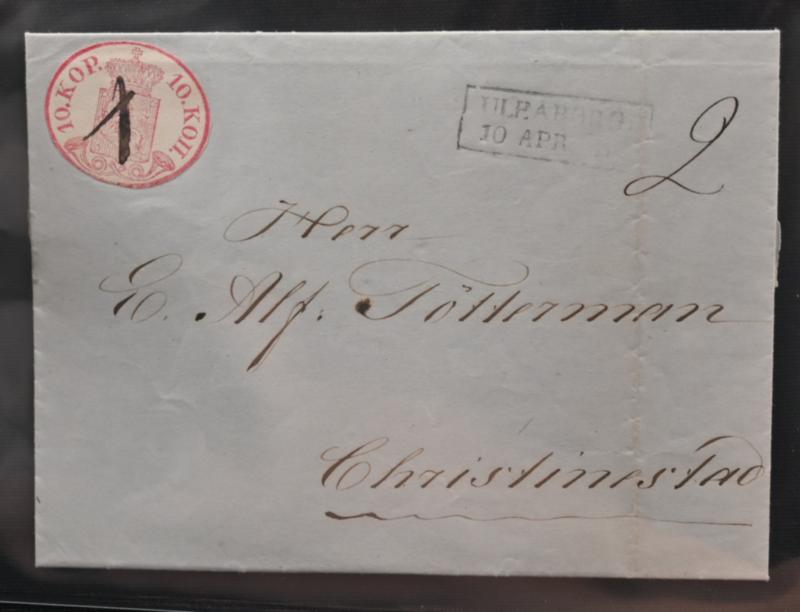 10.KOP. 10.КОП.
ULEABORG.
10 APR
2
Herr
E. Alf: Tötterman
Christinestad